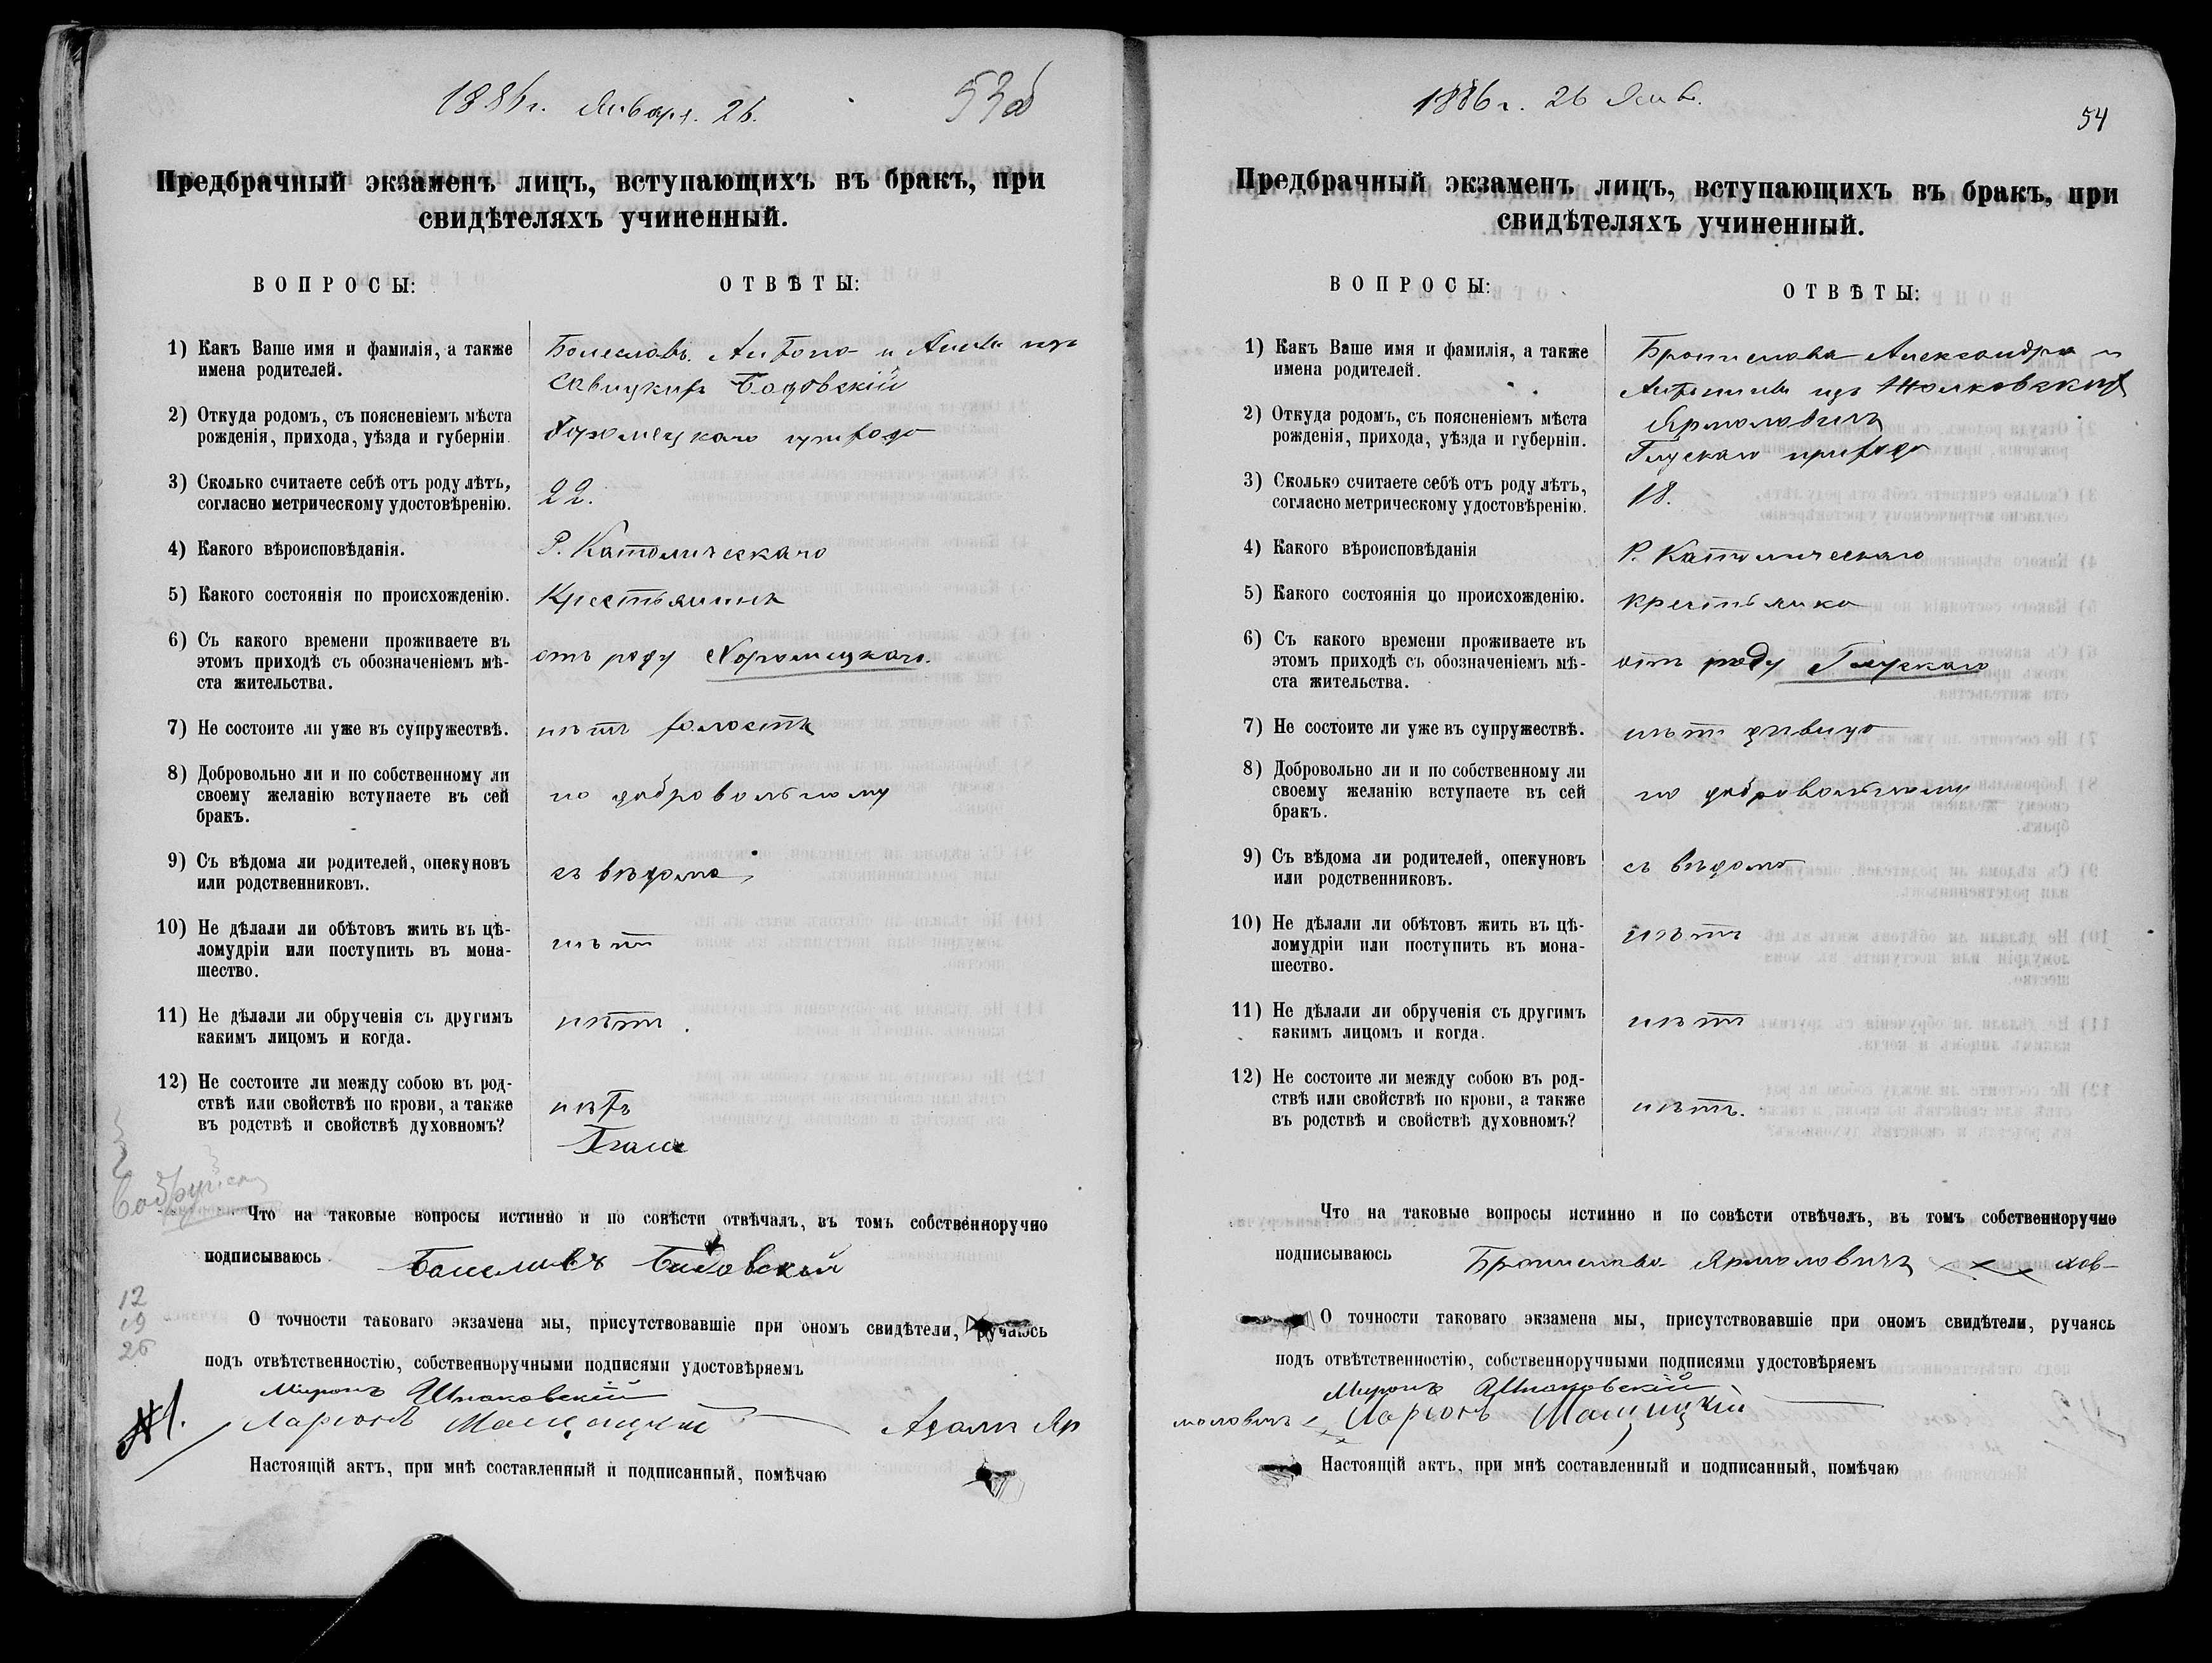 1886 г. Января. 26.
53 об
Предбрачный экзаменъ лицъ, вступающихъ въ бракъ, при
свидѣтеляхъ учиненный.
ВОПРОСЫ:
ОТВѢТЫ:
1) Какъ Ваше имя и фамилія, а также
имена родителей.
Болеславъ. Антона и Анны изъ
Савицкихъ
2) Откуда родомъ, съ поясненіемъ мѣста
рожденія, прихода, уѣзда и губерніи.
прихода
3) Сколько считаете себѣ отъ роду лѣтъ,
согласно метрическому удостовѣренію.
22.
4) Какого вѣроисповѣданія.
Р. Католическаго
5) Какого состоянія по происхожденію.
Крестьянинъ
6) Съ какого времени проживаете въ
этомъ приходѣ съ обозначеніемъ мѣ-
ста жительства.
отъ роду Хоромецкаго.
7) Не состоите ли уже въ супружествѣ.
нѣтъ холостъ
8) Добровольно ли и по собственному ли
своему желанію вступаете въ сей
бракъ.
по добровольному
9) Съ вѣдома ли родителей, опекуновъ
или родственниковъ.
съ вѣдома
10) Не дѣлали ли обѣтовъ жить въ цѣ-
ломудріи или поступить въ мона-
шество.
нѣтъ
11) Не дѣлали ли обрученія съ другимъ
какимъ лицомъ и когда.
нѣтъ.
12) Не состоите ли между собою въ род-
ствѣ или свойствѣ по крови, а также
въ родствѣ и свойствѣ духовномъ?
нѣтъ
Бобруйск
Что на таковые вопросы истинно и по совѣсти отвѣчалъ, въ томъ собственноручно
подписываюсь. Болеславъ
12
19
26
О точности таковаго экзамена мы, присутствовавшіе при ономъ свидѣтели, ручаясь
подъ отвѣтственностію, собственноручными подписями удостовѣряемъ
Миронъ Шпаковскій
№1. Ларіонъ Адамъ Яр
Настоящій актъ, при мнѣ составленный и подписанный, помѣчаю
1886 г. 26 Янв.
54
Предбрачный экзаменъ лицъ, вступающихъ въ бракъ, при
свидѣтеляхъ учиненный.
ВОПРОСЫ:
ОТВѢТЫ:
1) Какъ Ваше имя и фамилія, а также
имена родителей.
Бронислава Александра и
Антонины изъ Жолковскихъ
Ярмоловичъ
2) Откуда родомъ, съ поясненіемъ мѣста
рожденія, прихода, уѣзда и губерніи.
Глускаго прихода
3) Сколько считаете себѣ отъ роду лѣтъ,
согласно метрическому удостовѣренію.
18.
4) Какого вѣроисповѣданія
Р. Католическаго
5) Какого состоянія по происхожденію.
крестьянка
6) Съ какого времени проживаете въ
этомъ приходѣ съ обозначеніемъ мѣ-
ста жительства.
отъ роду Глускаго
7) Не состоите ли уже въ супружествѣ.
нѣтъ дѣвица
8) Добровольно ли и по собственному ли
своему желанію вступаете въ сей
бракъ.
по добровольному
9) Съ вѣдома ли родителей, опекуновъ
или родственниковъ.
съ вѣдома
10) Не дѣлали ли обѣтовъ жить въ цѣ-
ломудріи или поступить въ мона-
шество.
нѣтъ
11) Не дѣлали ли обрученія съ другимъ
какимъ лицомъ и когда.
нѣтъ
12) Не состоите ли между собою въ род-
ствѣ или свойствѣ по крови, а также
въ родствѣ и свойствѣ духовномъ?
нѣтъ.
Что на таковые вопросы истинно и по совѣсти отвѣчалъ, въ томъ собственноручно
подписываюсь Бронислава Ярмоловичъ ххх
О точности таковаго экзамена мы, присутствовавшіе при ономъ свидѣтели, ручаясь
подъ отвѣтственностію, собственноручными подписями удостовѣряемъ
Миронъ Шпаковскій
моловичъ Ларіонъ
Настоящій актъ, при мнѣ составленный и подписанный, помѣчаю